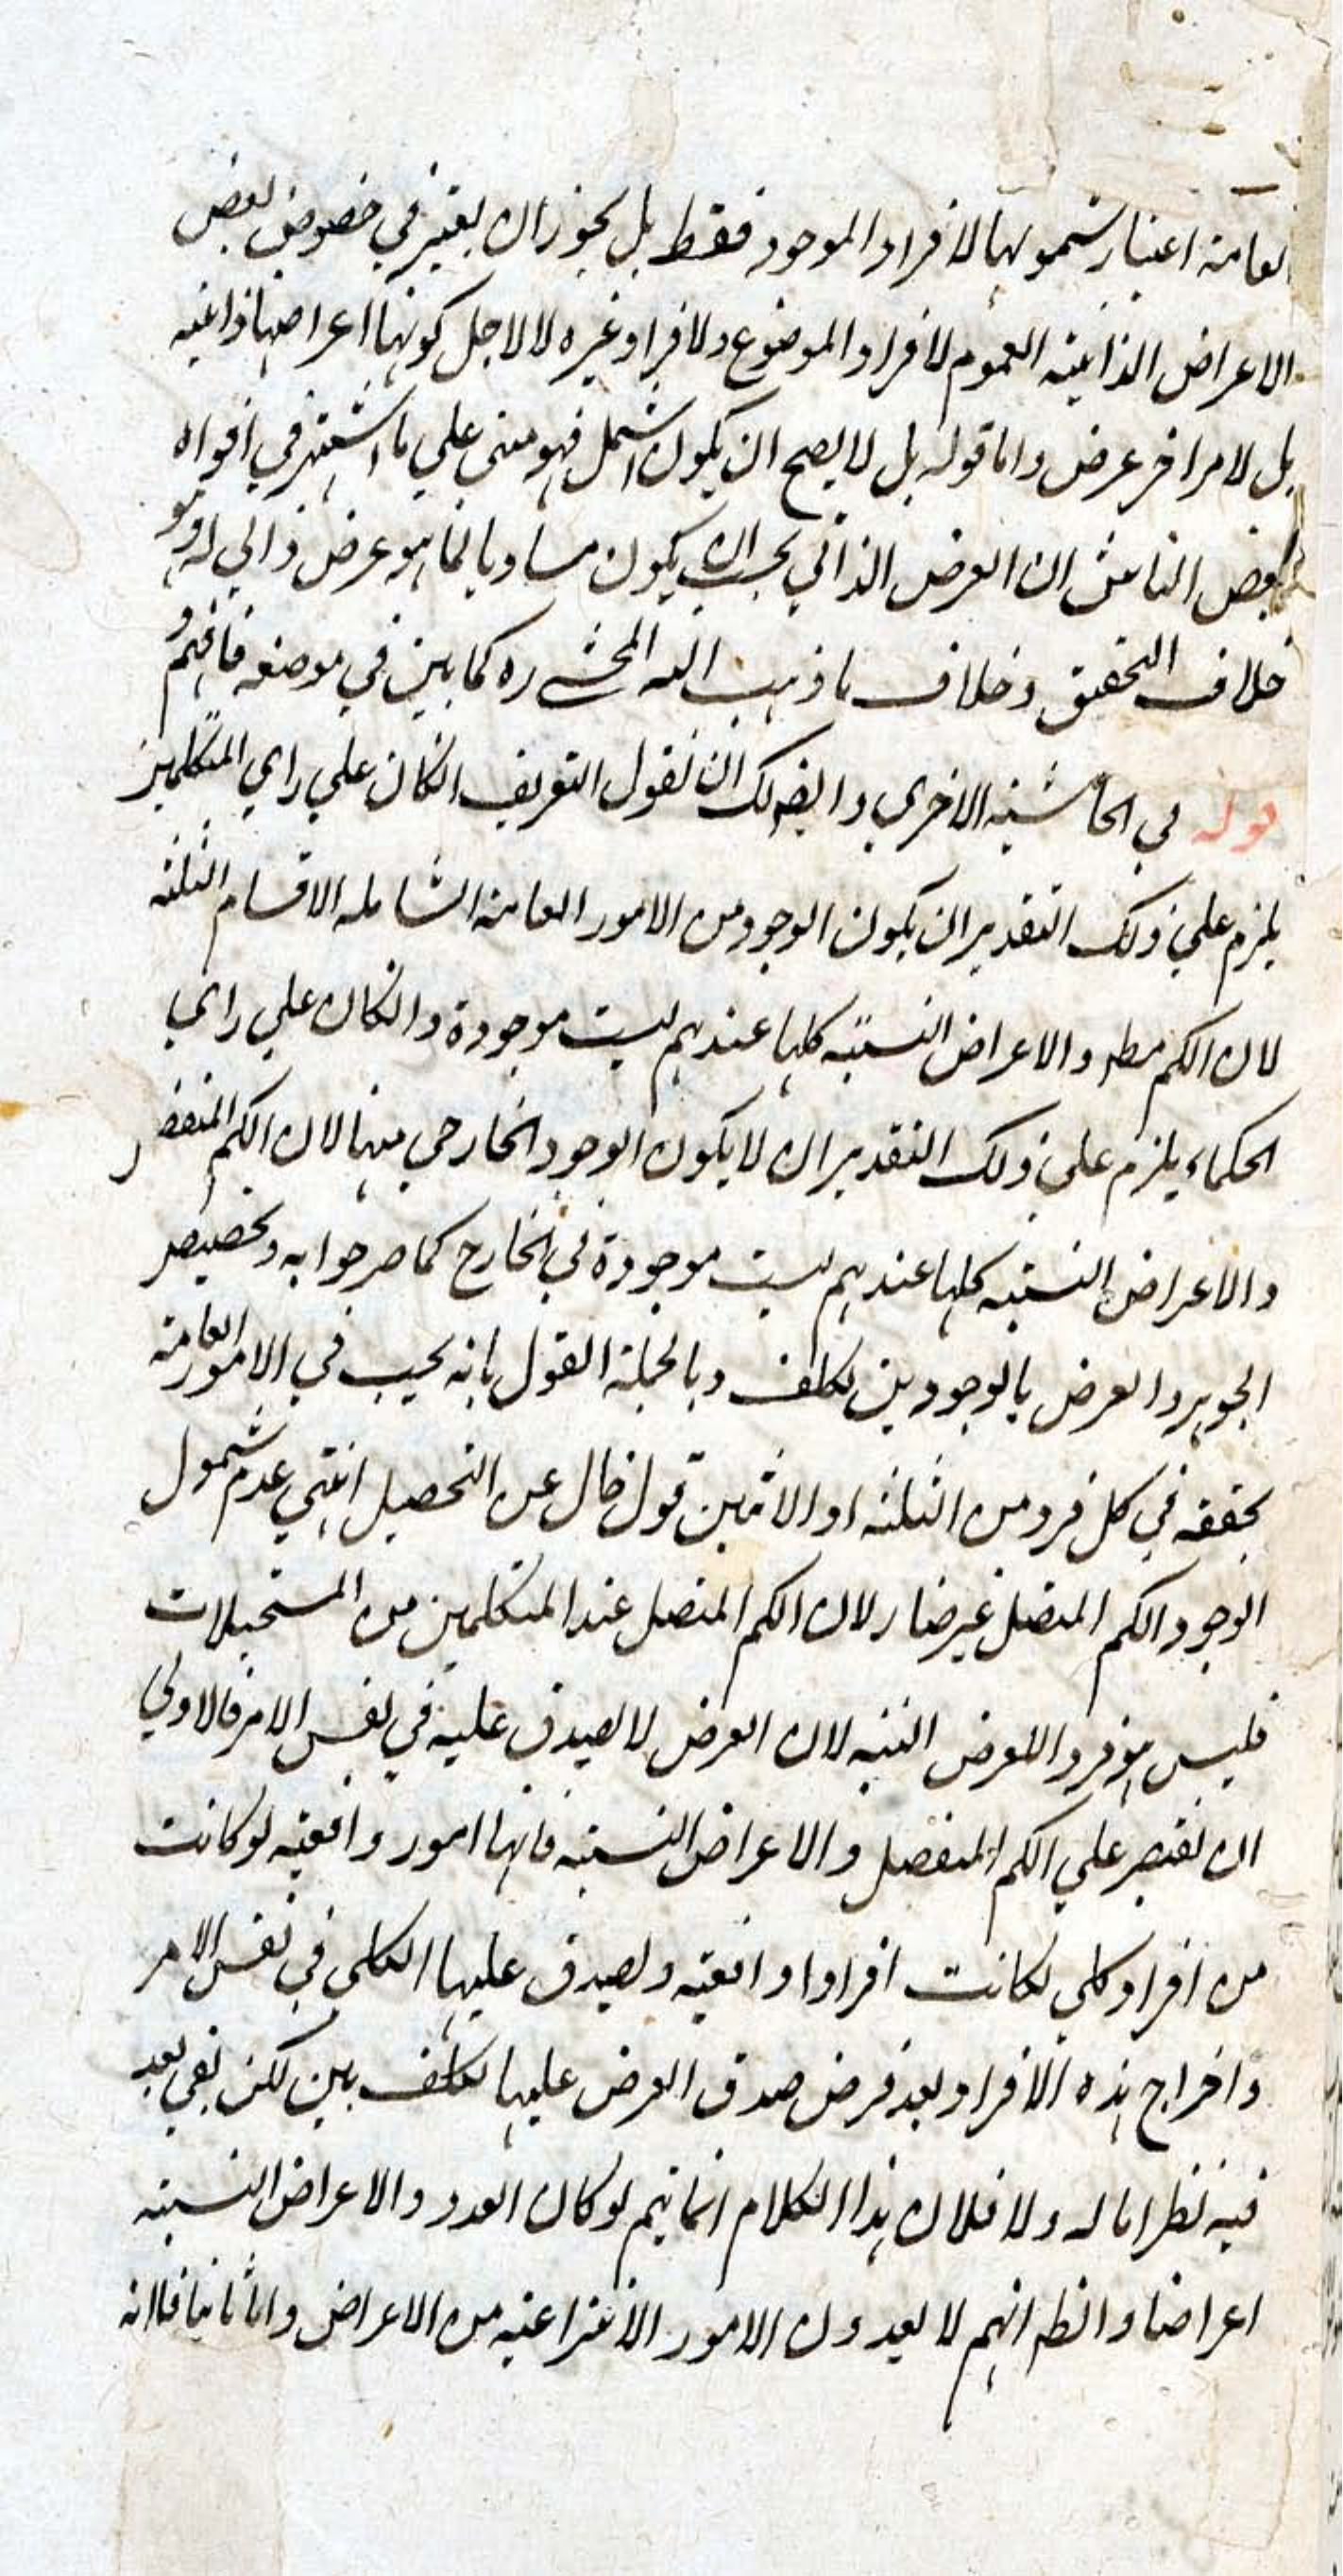 العامة اعتبار شمولها لافراد الموجود فقط بل يجوز ان يعتبر في خصوص بعض
الاعراض الذاتية العموم لافراد الموضوع ولافراد غيره لا لاجل كونها اعراضها ذاتيه
بل لامر اخر عرض واما قوله بل لا يصح ان يكون اشمل فهو مبنى علي ما اشتهر في افواه
بعض الناس ان العرض الذاتي يجب ان يكون مساويا لما هو عرض ذاتي له وهو
خلاف التحقيق وخلاف ما ذهب اليه المحشي ره كما بين في موضعه فافهم
قوله في الحاشية الاخري وايضا لك ان تقول التعريف انكان علي راي المتكلمين
يلزم علي ذلك التقدير ان يكون الوجود من الامور العامة الشامله الاقسام الثلثة
لان الكم مطر والاعراض النسبيه كلها عندهم ليست موجودة وانكان علي راي
الحكماء يلزم علي ذلك التقدير ان لا يكون الوجود الخارجي منها لان الكم المنفصل
والاعراض النسبيه كلها عندهم ليست موجودة في الخارج كما صرحوا به وتخصيص
الجوهر والعرض بالوجودين تكلف وبالجملة القول بانه يجب في الامور العامة
تحققه في كل فرد من الثلثه او الاثنين قول خال عن التحصيل انتهي عدم شمول
الوجود الكم المتصل غير ضار لان الكم المتصل عند المتكلمين من المستحيلات
فليس هو فردا للعرض البته لان العرض لا يصدق عليه في نفس الامر فالاولي
ان يقتصر علي الكم المنفصل والاعراض النسبيه فانها امور واقعيه لو كانت
من افراد كلي لكانت افرادا واقعيه ويصدق عليها الكلي في نفس الامر
واخراج هذه الافراد بعد فرض صدق العرض عليها تكلف بين لكن بقي بعد
فيه نظر اما اولا فلان هذا الكلام انما يتم لو كان العدد والاعراض النسبيه
اعراضا والظ انهم لا يعدون الامور الانتزاعيه من الاعراض واما ثانيا فلانه